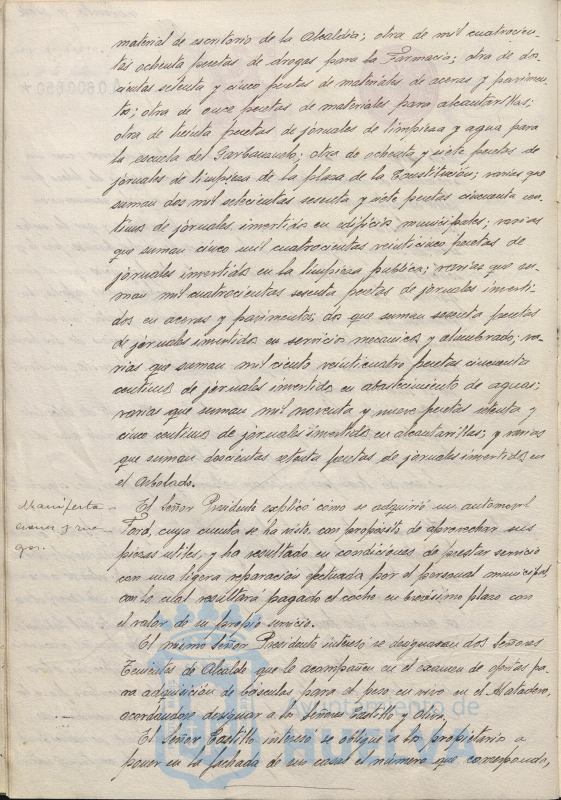 material de escritorio de la Alcaldía; otra de mil cuatrocien-
tas ochenta pesetas de drogas para la Farmacia; otra de dos-
cientas setenta y cinco pesetas de materiales de aceras y pavimen-
tos; otra de once pesetas de materiales para alcantarillas;
otra de treinta pesetas de jornales de limpieza y agua para
la escuela del Garbanzuelo; otra de ochenta y siete pesetas de
jornales de limpieza de la plaza de la Constitución; varias que
suman dos mil setecientas sesenta y siete pesetas cincuenta cen-
timos de jornales invertidos en edificios municipales; varias
que suman cinco mil cuatrocientas veinticinco pesetas de
jornales invertidos en la limpieza publica; varias que su-
man mil cuatrocientas sesenta pesetas de jornales inverti-
dos en aceras y pavimentos; dos que suman sesenta pesetas
de jornales invertidos en servicio mecanico y alumbrado; va-
rias que suman mil ciento veinticuatro pesetas cincuenta
centimos de jornales invertidos en abastecimiento de aguas;
varias que suman mil noventa y nueve pesetas setenta y
cinco centimos de jornales invertidos en alcantarillas; y varias
que suman doscientas setenta pesetas de jornales invertidos en
el Arbolado.
Manifesta-
ciones y rue-
gos.
El Señor Presidente explicó cómo se adquirió un automovil
Ford, cuya cuenta se ha visto, con propósito de aprovechar sus
piezas utiles, y ha resultado en condiciones de prestar servicio
con una ligera reparación efectuada por el personal municipal
con lo cual resultará pagado el coche en brevisimo plazo con
el valor de su propio servicio.
El mismo Señor Presidente interesó se designaran dos Señores
Tenientes de Alcalde que le acompañen en el examen de ofertas pa-
ra adquisición de básculas para el peso en vivo en el Matadero,
acordandose designar a los Señores Castillo y Oliva.
El Señor Castillo interesó se obligue a los propietarios a
poner en la fachada de sus casas el número que corresponda,
Ayuntamiento de
HUELVA